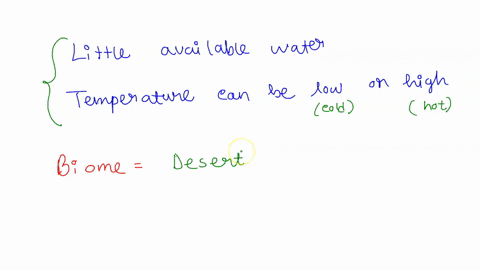 Little available water
Temperature can be low or high
(cold) (hot)
Biome = Desert